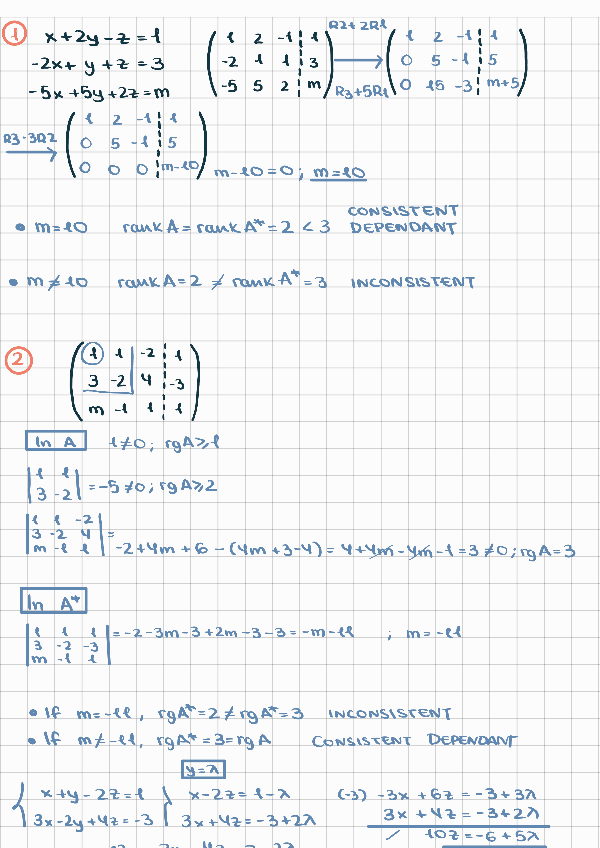 1 x+2y-z=1
-2x+y+z=3
-5x+5y+2z=m
( 1 2 -1 | 1
-2 1 1 | 3
-5 5 2 | m )
R2+2R1
R3+5R1
( 1 2 -1 | 1
0 5 -1 | 5
0 15 -3 | m+5 )
R3-3R2
( 1 2 -1 | 1
0 5 -1 | 5
0 0 0 | m-10 )
m-10=0; m=10
• m=10 rankA=rankA*=2<3 CONSISTENT DEPENDANT
• m≠10 rankA=2≠rankA*=3 INCONSISTENT
2 ( 1 1 -2 | 1
3 -2 4 | -3
m -1 1 | 1 )
In A 1≠0; rgA≥1
| 1 1
3 -2 | =-5≠0; rgA≥2
| 1 1 -2
3 -2 4
m -1 1 | =
-2+4m+6-(4m+3-4)=4+4m-4m-1=3≠0; rgA=3
In A*
| 1 1 1
3 -2 -3
m -1 1 | =-2-3m-3+2m-3-3=-m-11 ; m=-11
• If m=-11, rgA*=2≠rgA*=3 INCONSISTENT
• If m≠-11, rgA*=3=rgA CONSISTENT DEPENDANT
y=λ
{ x+y-2z=1
3x-2y+4z=-3
{ x-2z=1-λ
3x+4z=-3+2λ
(-3) -3x+6z=-3+3λ
3x+4z=-3+2λ
/ 10z=-6+5λ